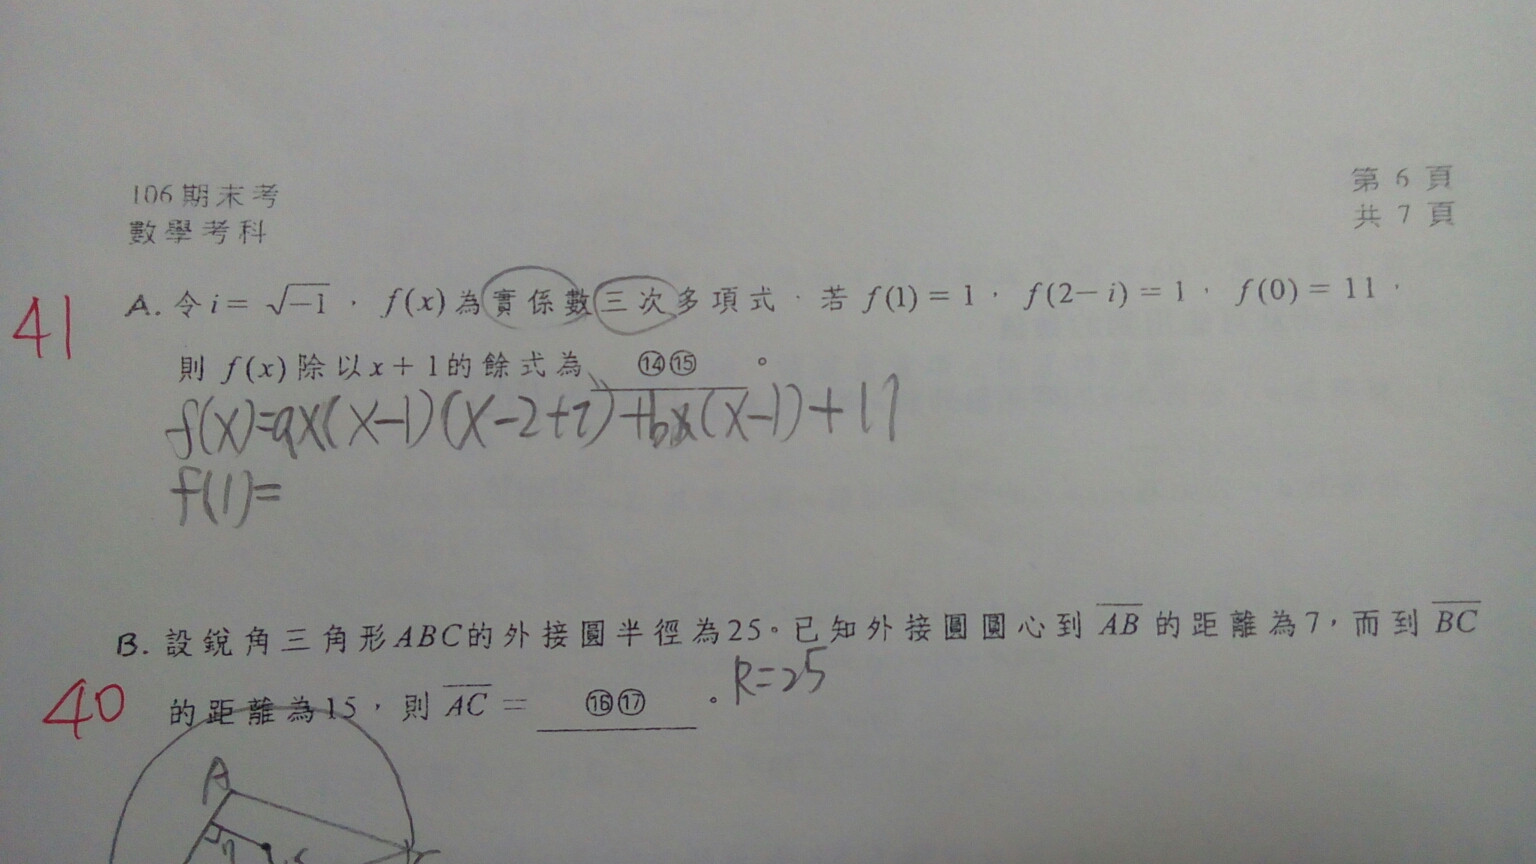 106期末考
第 6 頁
數學考科
共 7 頁
41
A. 令 i = √−1 , f(x) 為實係數三次多項式. 若 f(1) = 1, f(2− i) = 1, f(0) = 11,
則 f(x) 除以 x + 1的餘式為 ⑭⑮ 。
f(x)=ax(x-1)(x-2+i)+bx(x-1)+11
f(1)=
B. 設銳角三角形ABC的外接圓半徑為25。已知外接圓圓心到 AB 的距離為7,而到 BC
40
的距離為15,則 AC = ⑯⑰ 。
R=25
A
7